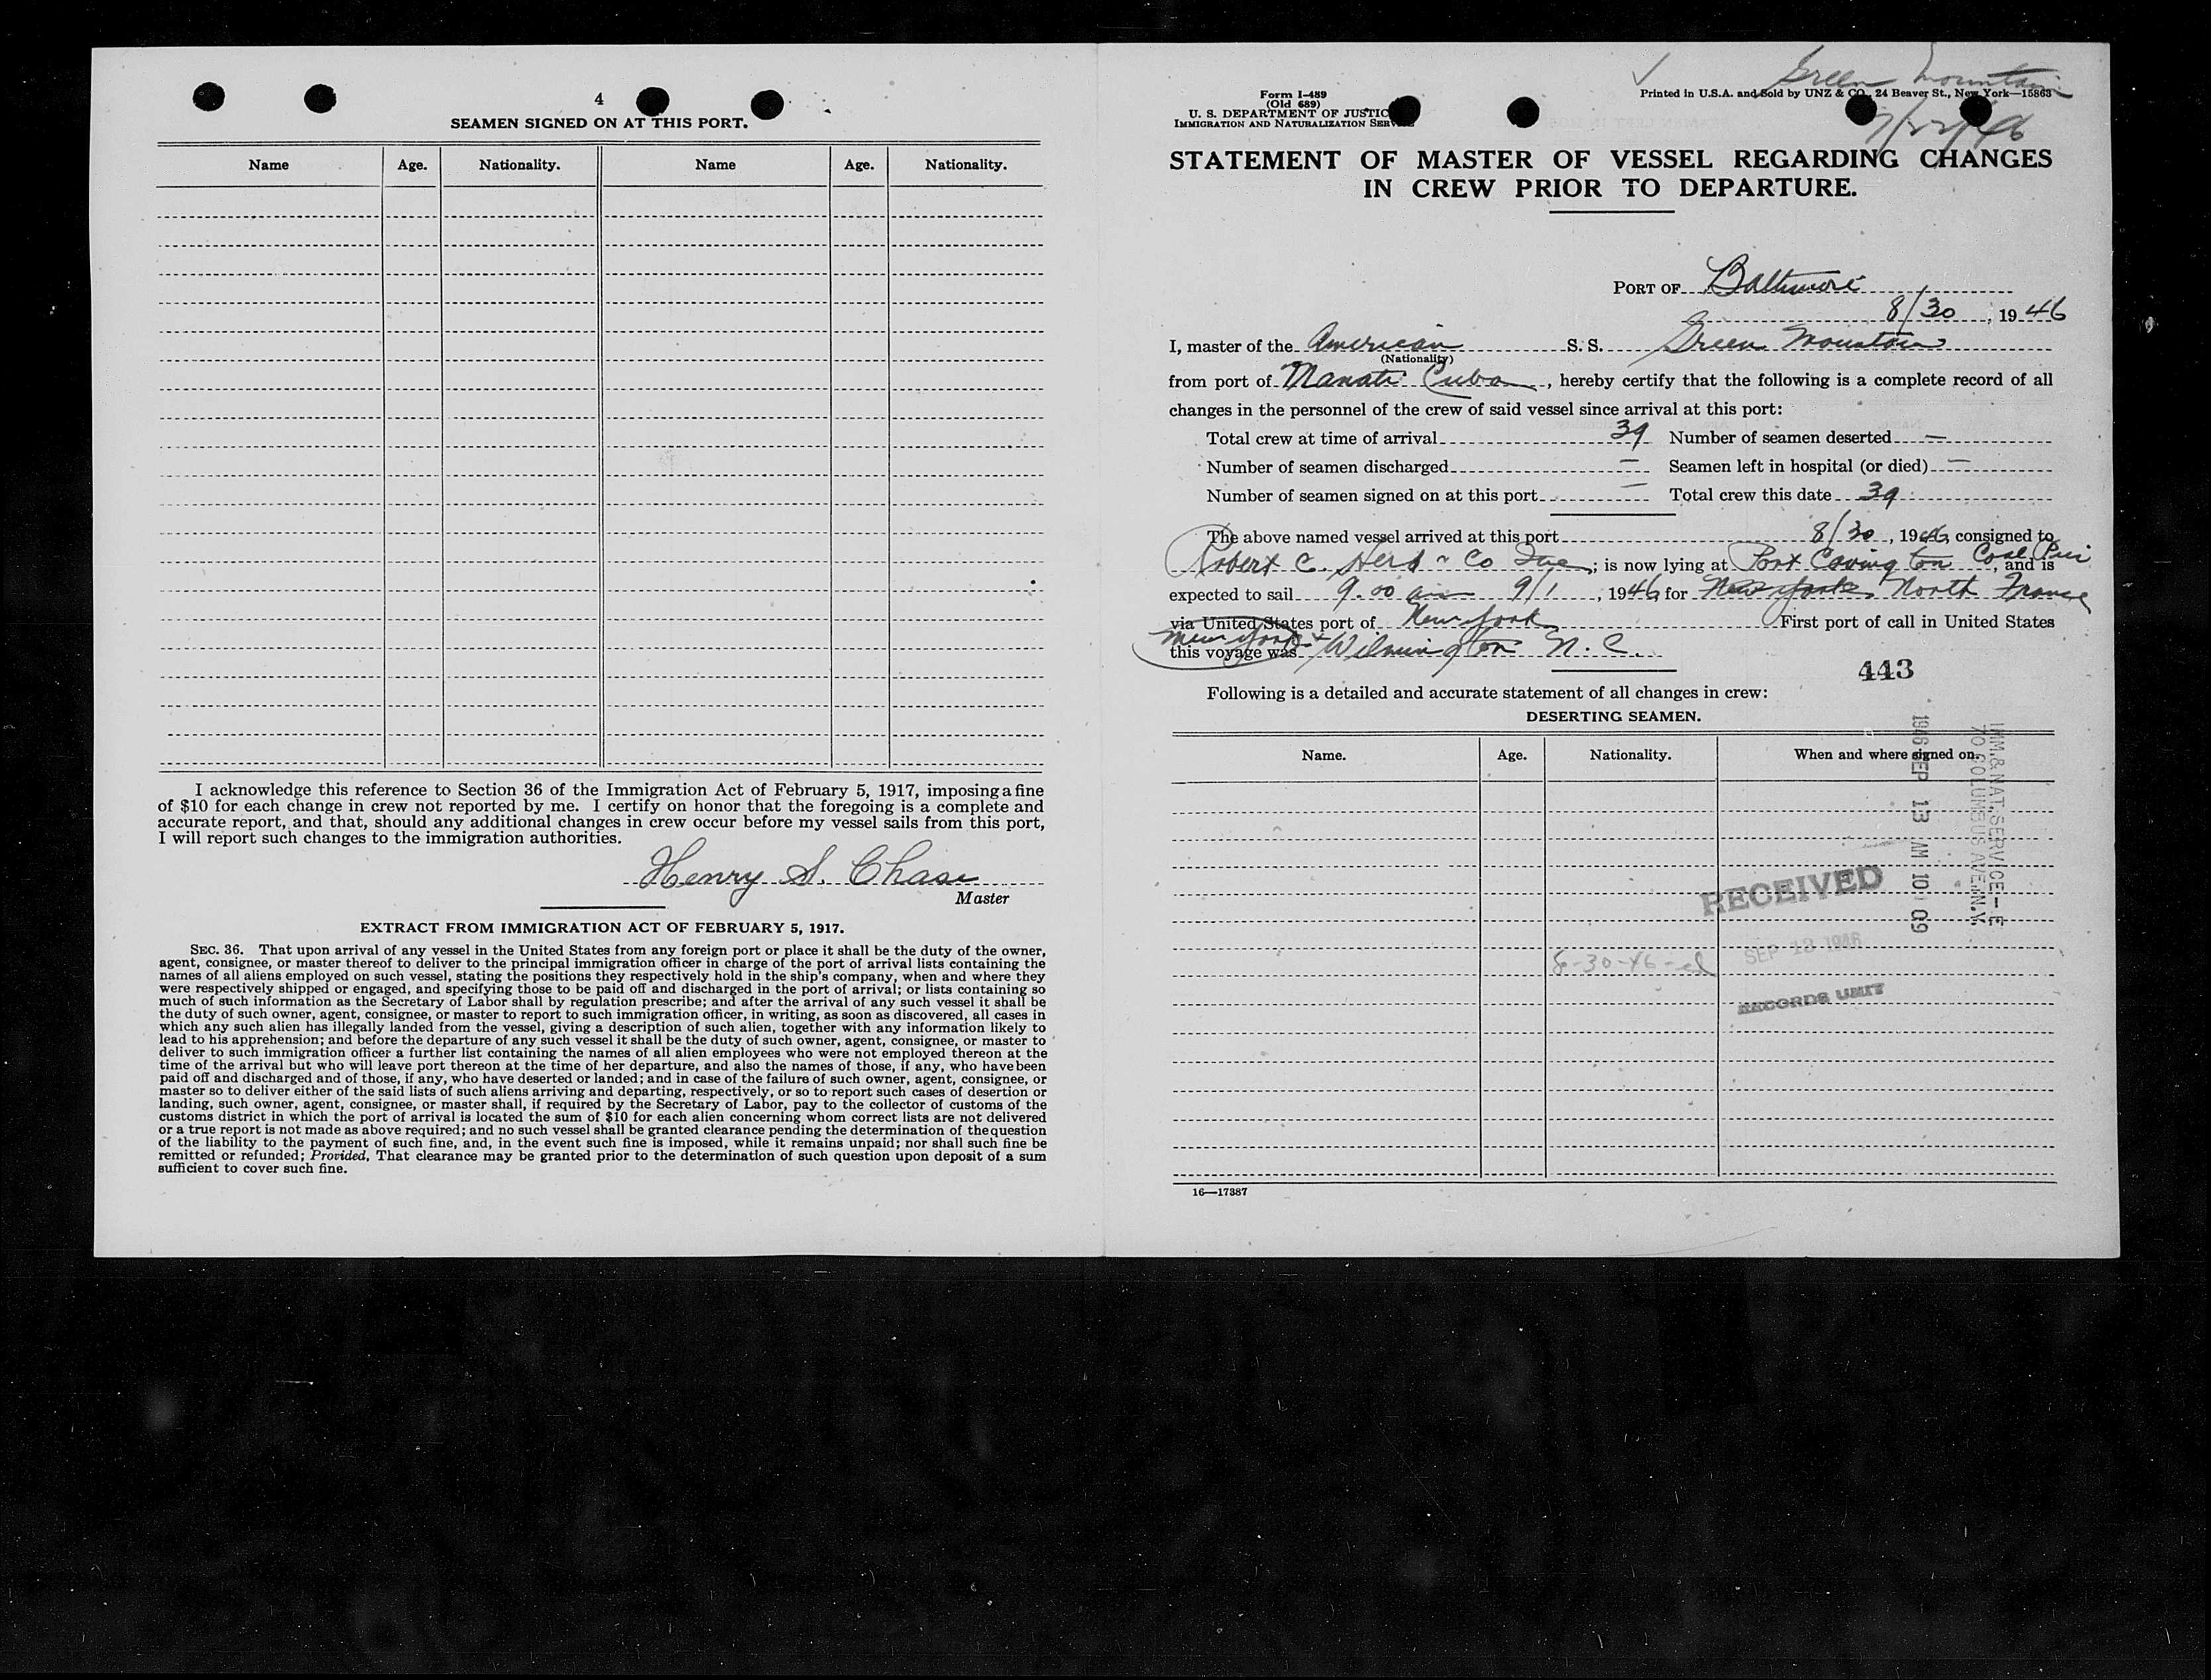 4
SEAMEN SIGNED ON AT THIS PORT.
Name Age. Nationality. Name Age. Nationality.
I acknowledge this reference to Section 36 of the Immigration Act of February 5, 1917, imposing a fine
of $10 for each change in crew not reported by me. I certify on honor that the foregoing is a complete and
accurate report, and that, should any additional changes in crew occur before my vessel sails from this port,
I will report such changes to the immigration authorities.
Henry S. Chase
Master
EXTRACT FROM IMMIGRATION ACT OF FEBRUARY 5, 1917.
SEC. 36. That upon arrival of any vessel in the United States from any foreign port or place it shall be the duty of the owner,
agent, consignee, or master thereof to deliver to the principal immigration officer in charge of the port of arrival lists containing the
names of all aliens employed on such vessel, stating the positions they respectively hold in the ship's company, when and where they
were respectively shipped or engaged, and specifying those to be paid off and discharged in the port of arrival; or lists containing so
much of such information as the Secretary of Labor shall by regulation prescribe; and after the arrival of any such vessel it shall be
the duty of such owner, agent, consignee, or master to report to such immigration officer, in writing, as soon as discovered, all cases in
which any such alien has illegally landed from the vessel, giving a description of such alien, together with any information likely to
lead to his apprehension; and before the departure of any such vessel it shall be the duty of such owner, agent, consignee, or master to
deliver to such immigration officer a further list containing the names of all alien employees who were not employed thereon at the
time of the arrival but who will leave port thereon at the time of her departure, and also the names of those, if any, who have been
paid off and discharged and of those, if any, who have deserted or landed; and in case of the failure of such owner, agent, consignee, or
master so to deliver either of the said lists of such aliens arriving and departing, respectively, or so to report such cases of desertion or
landing, such owner, agent, consignee, or master shall, if required by the Secretary of Labor, pay to the collector of customs of the
customs district in which the port of arrival is located the sum of $10 for each alien concerning whom correct lists are not delivered
or a true report is not made as above required; and no such vessel shall be granted clearance pending the determination of the question
of the liability to the payment of such fine, and, in the event such fine is imposed, while it remains unpaid; nor shall such fine be
remitted or refunded; Provided, That clearance may be granted prior to the determination of such question upon deposit of a sum
sufficient to cover such fine.
Green Mountain
Form I-489
(Old 689)
U. S. DEPARTMENT OF JUSTIC
IMMIGRATION AND NATURALIZATION SERV
Printed in U.S.A. and Sold by UNZ & CO., 24 Beaver St., New York—15863
STATEMENT OF MASTER OF VESSEL REGARDING CHANGES
IN CREW PRIOR TO DEPARTURE.
PORT OF Baltimore
8/30, 1946
I, master of the American S. S. Green Mountain
(Nationality)
from port of Manati Cuba, hereby certify that the following is a complete record of all
changes in the personnel of the crew of said vessel since arrival at this port:
Total crew at time of arrival 39 Number of seamen deserted —
Number of seamen discharged — Seamen left in hospital (or died) —
Number of seamen signed on at this port — Total crew this date 39
The above named vessel arrived at this port 8/30, 1946, consigned to
Robert C. Herd & Co Inc; is now lying at Port Covington Coal Pier, and is
expected to sail 9.00 am 9/1, 1946, for New York North France
via United States port of New York First port of call in United States
this voyage was New York + Wilmington N. C.
443
Following is a detailed and accurate statement of all changes in crew:
DESERTING SEAMEN.
Name. Age. Nationality. When and where signed on.
IMM. & NAT. SERVICE—E
70 COLUMBUS AVE. N.Y.
1946 SEP 13 AM 10 09
RECEIVED
SEP 13 1946
RECORDS UNIT
8-30-46-el
16—17387